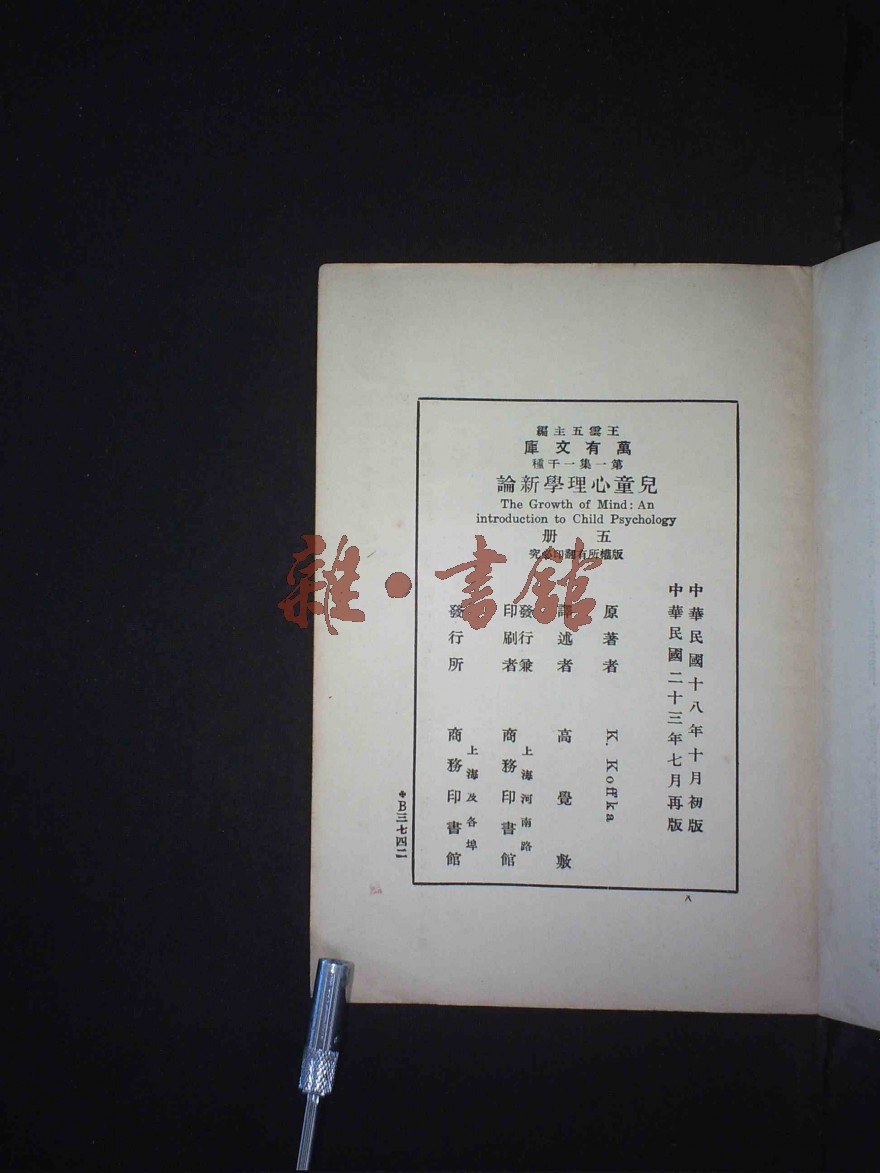 編主五雲王
庫文有萬
種千一集一第
論新學理心童兒
The Growth of Mind: An
introduction to Child Psychology
册五
究必印翻有所權版
中華民國十八年十月初版
中華民國二十三年七月再版
原著者 K. Koffka
譯述者 高覺敷
發行兼印刷者 上海河南路 商務印書館
發行所 上海及各埠 商務印書館
B三七四二
雜·書館